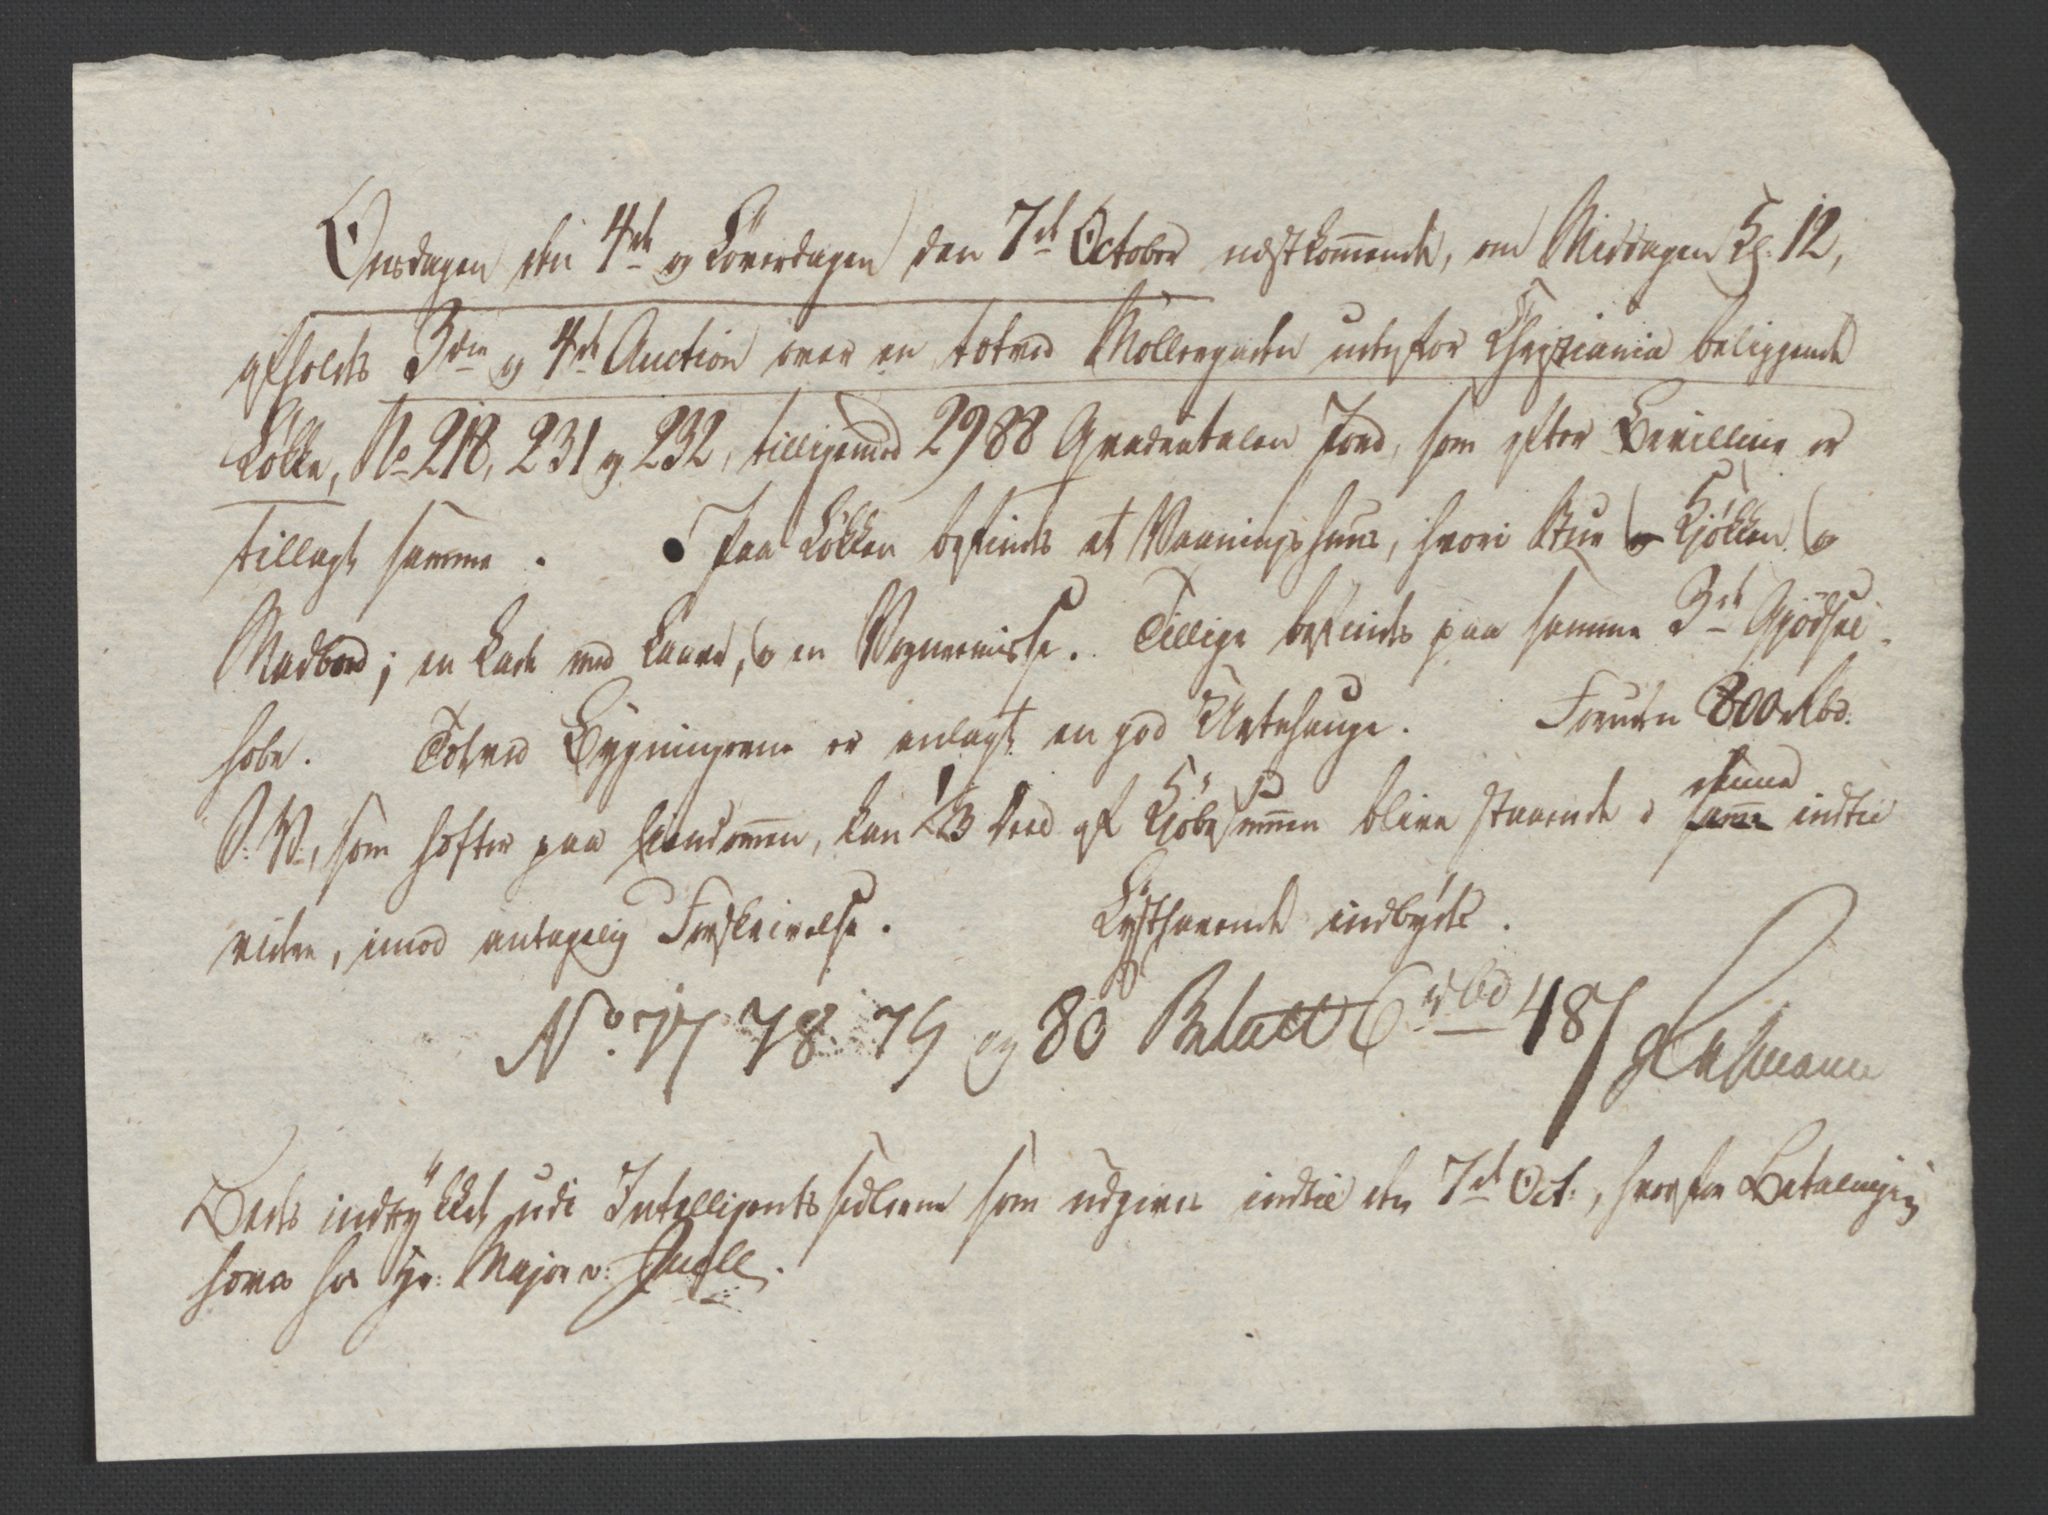 Onsdagen den 4de og Löverdagen den 7de October nestkommende, om Middagen Kl. 12,
afholdes 3die og 4de Auction over en tetved Möllergaden udenfor Christiania beliggende
Løkke, No 218, 231 og 232, tilligemed 2988 Qvadratalen Jord, som efter Bevilling er
tillagt samme. Paa Løkken befindes et Vaaningshuus, hvori Stue og Kjøkken og
Madbod; en Lade med Laave, og en Vognremisse. Tillige befindes paa samme 3de Gjødsel-
hobe. Tetved Bygningerne er anlagt en god Urtehauge. Foruden 800 Rbd.
S. V., som hefter paa Eiendommen, kan 1/3 Deel af Kjöbesummen blive staaende i denne indtil
videre, imod antagelig Forskrivelse. Lysthavende indbydes.
No. 77 78 79 og 80 Betalt 6 rbd 48 s
Bedes indrykket udi Intelligentssedlerne som udgives indtil den 7de Oct., hvorfor Betalingen
haves hos Hr. Major v.